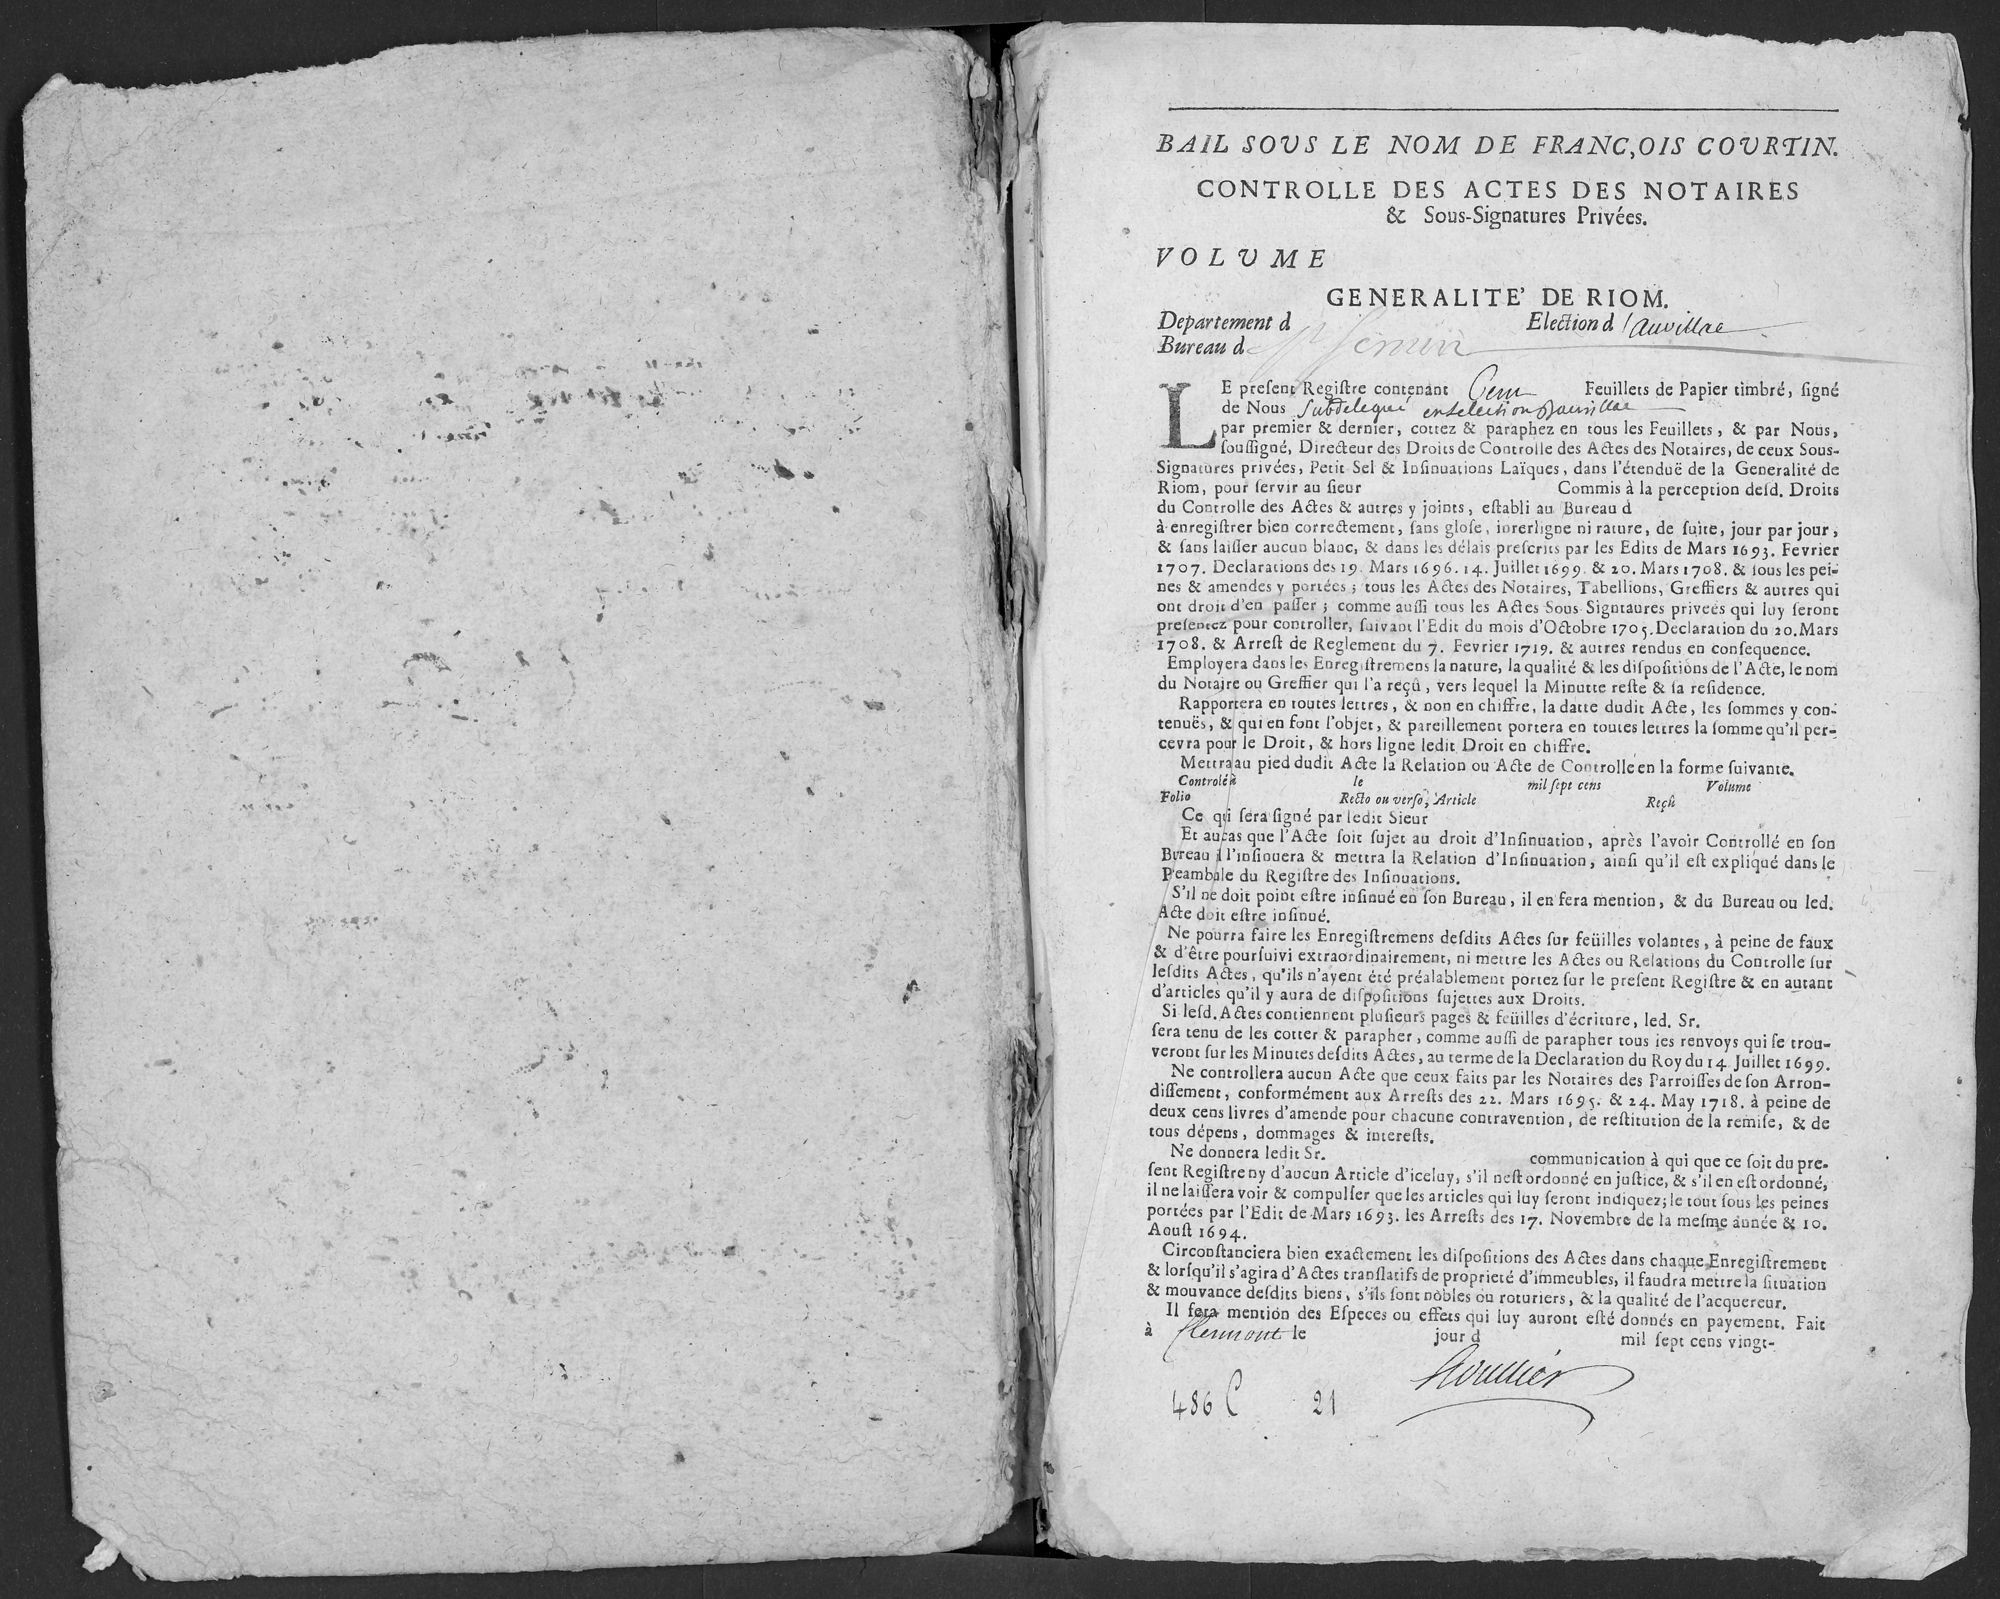 BAIL SOUS LE NOM DE FRANC,OIS COURTIN.
CONTROLLE DES ACTES DES NOTAIRES
& Sous-Signatures Privées.
VOLUME
GENERALITE' DE RIOM.
Departement d Election d'auvillac
Bureau d St Sernin
LE preſent Regiſtre contenant Cent Feuillets de Papier timbré, ſigné
de Nous Subdelegué en lelection
par premier & dernier, cottez & paraphez en tous les Feuillets, & par Nous,
ſouſſigné, Directeur des Droits de Controlle des Actes des Notaires, de ceux Sous-
Signatures privées, Petit Sel & Inſinuations Laïques, dans l'étenduë de la Generalité de
Riom, pour ſervir au ſieur Commis à la perception deſd. Droits
du Controlle des Actes & autres y joints, eſtabli au Bureau d
à enregiſtrer bien correctement, ſans gloſe, inrerligne ni rature, de ſuite, jour par jour,
& ſans laiſſer aucun blanc, & dans les délais preſcrits par les Edits de Mars 1693. Fevrier
1707. Declarations des 19. Mars 1696. 14. Juillet 1699. & 20. Mars 1708. & ſous les pei-
nes & amendes y portées; tous les Actes des Notaires, Tabellions, Greffiers & autres qui
ont droit d'en paſſer; comme auſſi tous les Actes Sous Signtaures privées qui luy ſeront
preſentez pour controller, ſuivant l'Edit du mois d'Octobre 1705. Declaration du 20. Mars
1708. & Arreſt de Reglement du 7. Fevrier 1719. & autres rendus en conſequence.
Employera dans les Enregiſtremens la nature, la qualité & les diſpoſitions de l'Acte, le nom
du Notaire ou Greffier qui l'a reçû, vers lequel la Minutte reſte & ſa reſidence.
Rapportera en toutes lettres, & non en chiffre, la datte dudit Acte, les ſommes y con-
tenuës, & qui en font l'objet, & pareillement portera en toutes lettres la ſomme qu'il per-
cevra pour le Droit, & hors ligne ledit Droit en chiffre.
Mettra au pied dudit Acte la Relation ou Acte de Controlle en la forme ſuivante.
Controlé à le mil ſept cens Volume
Folio Recto ou verſo, Article Reçû
Ce qui ſera ſigné par ledit Sieur
Et au cas que l'Acte ſoit ſujet au droit d'Inſinuation, après l'avoir Controllé en ſon
Bureau il l'inſinuera & mettra la Relation d'Inſinuation, ainſi qu'il eſt expliqué dans le
Préambule du Regiſtre des Inſinuations.
S'il ne doit point eſtre inſinué en ſon Bureau, il en fera mention, & du Bureau ou led.
Acte doit eſtre inſinué.
Ne pourra faire les Enregiſtremens deſdits Actes ſur feüilles volantes, à peine de faux
& d'être pourſuivi extraordinairement, ni mettre les Actes ou Relations du Controlle ſur
leſdits Actes, qu'ils n'ayent été préalablement portez ſur le preſent Regiſtre & en autant
d'articles qu'il y aura de diſpoſitions ſujettes aux Droits.
Si leſd. Actes contiennent pluſieurs pages & feüilles d'écriture, led. Sr.
ſera tenu de les cotter & parapher, comme auſſi de parapher tous les renvoys qui ſe trou-
veront ſur les Minutes deſdits Actes, au terme de la Declaration du Roy du 14. Juillet 1699.
Ne controllera aucun Acte que ceux faits par les Notaires des Parroiſſes de ſon Arron-
diſſement, conformément aux Arreſts des 22. Mars 1695. & 24. May 1718. à peine de
deux cens livres d'amende pour chacune contravention, de reſtitution de la remiſe, & de
tous dépens, dommages & intereſts.
Ne donnera ledit Sr. communication à qui que ce ſoit du pre-
ſent Regiſtre ny d'aucun Article d'iceluy, s'il neſt ordonné en juſtice, & s'il en eſt ordonné,
il ne laiſſera voir & compulſer que les articles qui luy ſeront indiquez; le tout ſous les peines
portées par l'Edit de Mars 1693. les Arreſts des 17. Novembre de la meſme année & 10.
Aouſt 1694.
Circonſtanciera bien exactement les diſpoſitions des Actes dans chaque Enregiſtrement
& lorſqu'il s'agira d'Actes tranſlatifs de proprieté d'immeubles, il faudra mettre la ſituation
& mouvance deſdits biens, s'ils ſont nobles ou roturiers, & la qualité de l'acquereur.
Il fera mention des Eſpeces ou effets qui luy auront eſté donnés en payement. Fait
à Clermont le jour d mil ſept cens vingt-
486 C 21